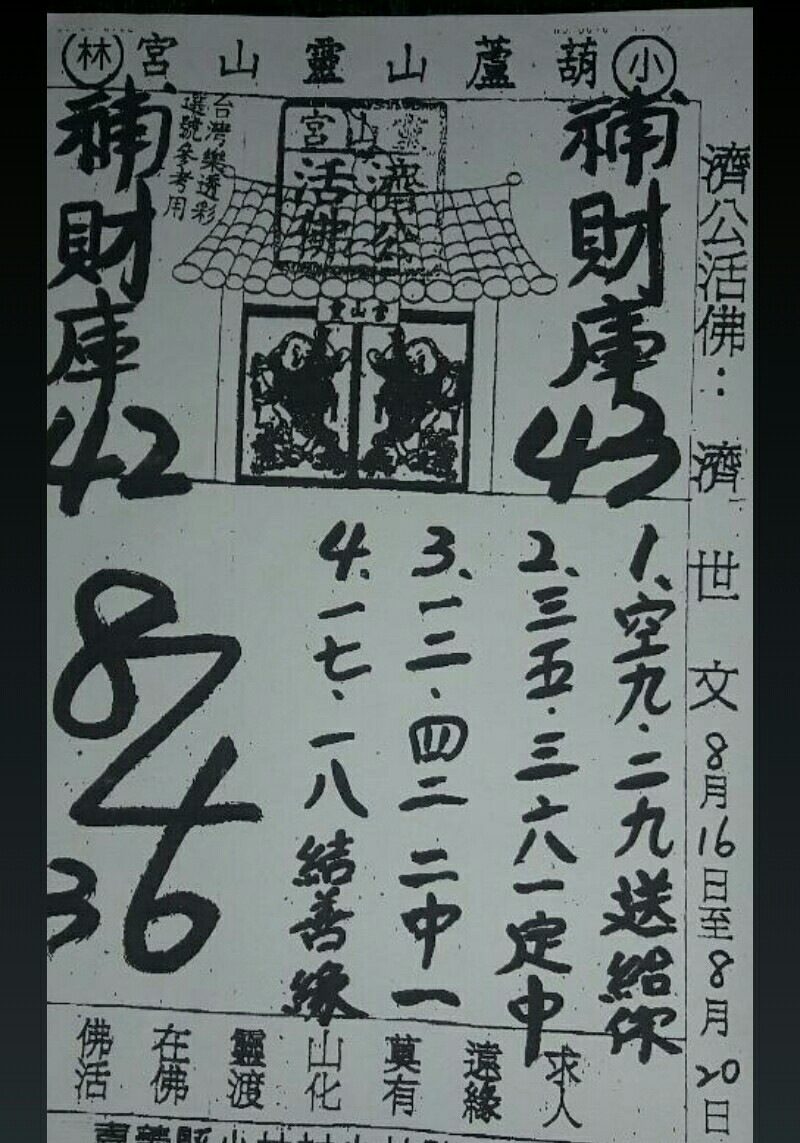 小 葫蘆山靈山宮 林
濟公活佛：濟世文 8月16日至8月20日
補財庫 43
台灣樂透彩
選號參考用
濟公
活佛
山宮
靈山宮
補財庫 42
1、空九．二九送給你
2、三五．三六八一定中
3、一二．四二 二中一
4、一七．一八結善緣
8 7 4 6
36
求人
遠緣
莫有
山化
靈渡
在佛
佛活